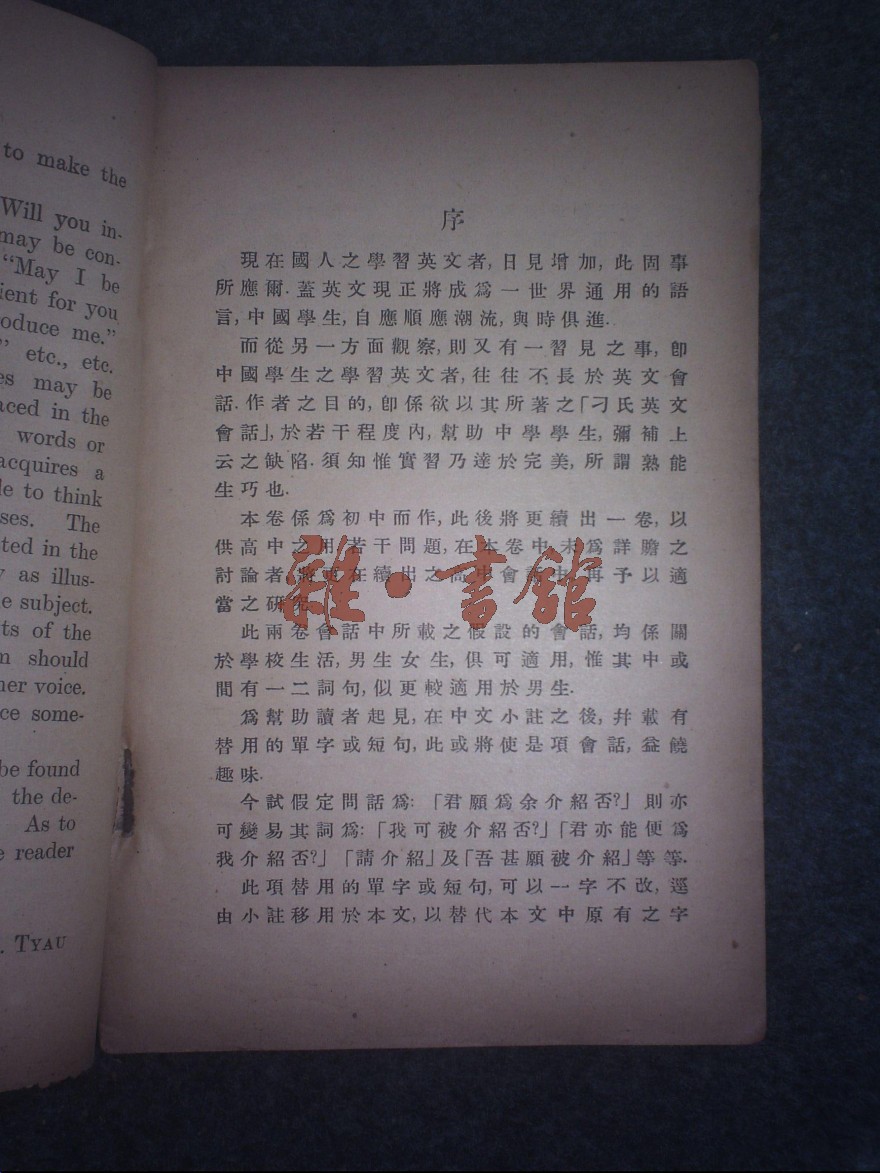 to make the
Will you in-
may be con-
"May I be
ient for you
oduce me."
" etc., etc.
es may be
aced in the
words or
acquires a
le to think
ses. The
ted in the
y as illus-
e subject.
ts of the
n should
her voice.
ce some-
be found
the de-
As to
e reader
. TYAU
序
現在國人之學習英文者,日見增加,此固事
所應爾.蓋英文現正將成爲一世界通用的語
言,中國學生,自應順應潮流,與時俱進.
而從另一方面觀察,則又有一習見之事,卽
中國學生之學習英文者,往往不長於英文會
話.作者之目的,卽係欲以其所著之「刁氏英文
會話」,於若干程度內,幫助中學學生,彌補上
云之缺陷.須知惟實習乃達於完美,所謂熟能
生巧也.
本卷係爲初中而作,此後將更續出一卷,以
供高中之用.若干問題,在本卷中未爲詳贍之
討論者,將更在續出之高中會話中,再予以適
當之研究.
此兩卷會話中所載之假設的會話,均係關
於學校生活,男生女生,俱可適用,惟其中或
間有一二詞句,似更較適用於男生.
爲幫助讀者起見,在中文小註之後,幷載有
替用的單字或短句,此或將使是項會話,益饒
趣味.
今試假定問話爲:「君願爲余介紹否?」則亦
可變易其詞爲:「我可被介紹否?」「君亦能便爲
我介紹否?」「請介紹」及「吾甚願被介紹」等等.
此項替用的單字或短句,可以一字不改,逕
由小註移用於本文,以替代本文中原有之字
雜·書館